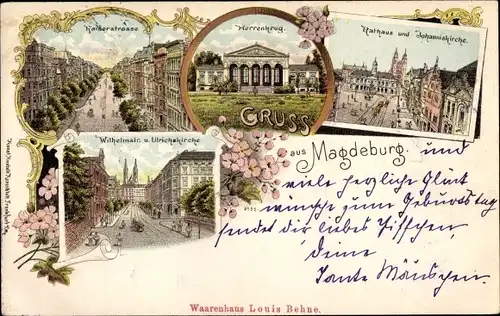 Kaiserstrasse
Herrenkrug.
Rathaus und Johanniskirche.
GRUSS
Wilhelmstr. u. Ulrichskirche
aus Magdeburg. und
viele herzliche Glück
wünsche zum Geburtstag
sendet dir liebes
deine
Tante Mäuschen.
Waarenhaus Louis Behne.